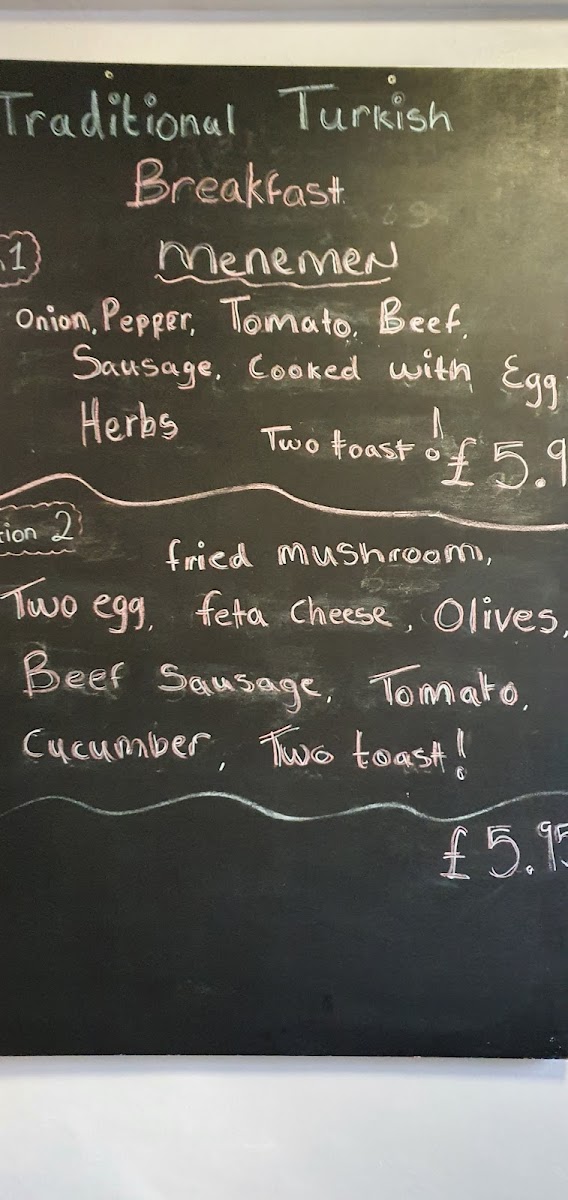 Traditional Turkish
Breakfast
1 Menemen
Onion, Pepper, Tomato, Beef,
Sausage, Cooked with Egg
Herbs Two toast! £5.9
tion 2
fried mushroom,
Two egg, feta cheese, Olives,
Beef Sausage, Tomato,
Cucumber, Two toast!
£5.95